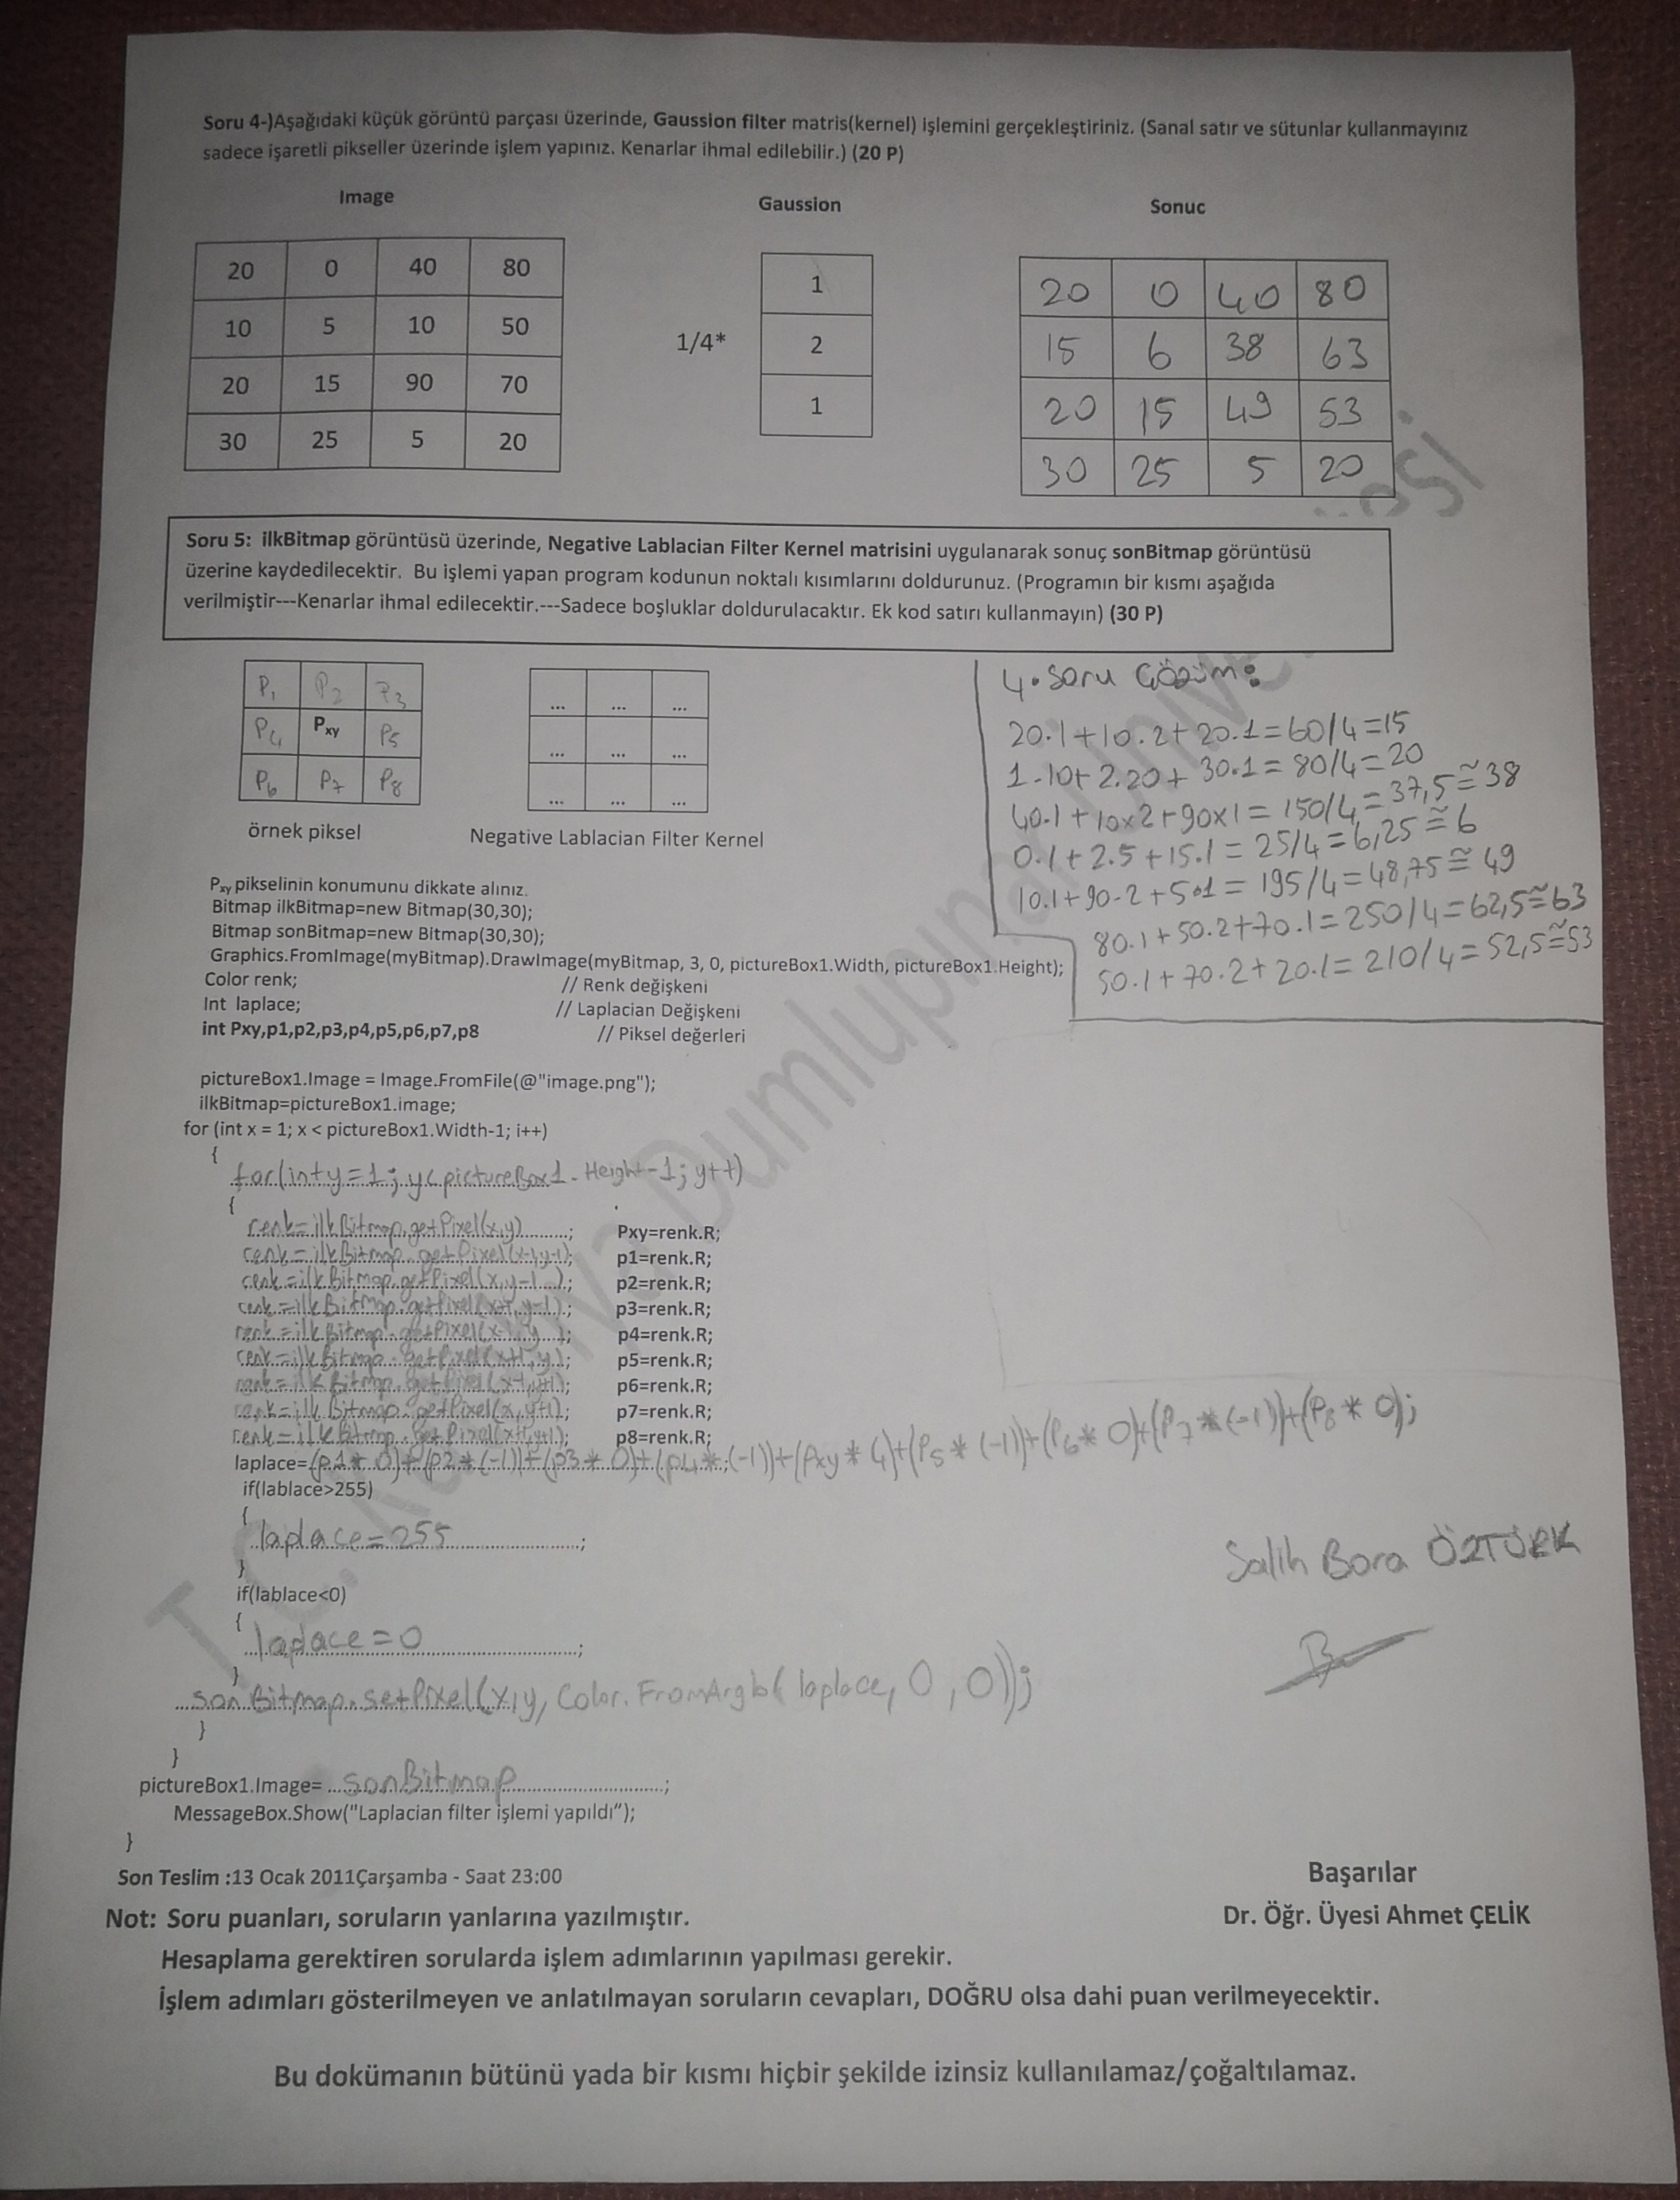 Soru 4-)Aşağıdaki küçük görüntü parçası üzerinde, Gaussion filter matris(kernel) işlemini gerçekleştiriniz. (Sanal satır ve sütunlar kullanmayınız
sadece işaretli pikseller üzerinde işlem yapınız. Kenarlar ihmal edilebilir.) (20 P)
Image
20 0 40 80
10 5 10 50
20 15 90 70
30 25 5 20
Gaussion
1/4*
1
2
1
Sonuc
20 0 40 80
15 6 38 63
20 15 49 53
30 25 5 20
Soru 5: ilkBitmap görüntüsü üzerinde, Negative Lablacian Filter Kernel matrisini uygulanarak sonuç sonBitmap görüntüsü
üzerine kaydedilecektir. Bu işlemi yapan program kodunun noktalı kısımlarını doldurunuz. (Programın bir kısmı aşağıda
verilmiştir---Kenarlar ihmal edilecektir.---Sadece boşluklar doldurulacaktır. Ek kod satırı kullanmayın) (30 P)
P1 P2 P3
P4 Pxy P5
P6 P7 P8
örnek piksel
... ... ...
... ... ...
... ... ...
Negative Lablacian Filter Kernel
4. Soru Çözüm:
20.1+10.2+20.1=60/4=15
1.10+2.20+30.1=80/4=20
40.1+10x2+90x1=150/4=37,5≅38
0.1+2.5+15.1=25/4=6,25≅6
10.1+90.2+5.1=195/4=48,75≅49
80.1+50.2+70.1=250/4=62,5≅63
50.1+70.2+20.1=210/4=52,5≅53
Pxy pikselinin konumunu dikkate alınız.
Bitmap ilkBitmap=new Bitmap(30,30);
Bitmap sonBitmap=new Bitmap(30,30);
Graphics.FromImage(myBitmap).DrawImage(myBitmap, 3, 0, pictureBox1.Width, pictureBox1.Height);
Color renk; // Renk değişkeni
Int laplace; // Laplacian Değişkeni
int Pxy,p1,p2,p3,p4,p5,p6,p7,p8 // Piksel değerleri
pictureBox1.Image = Image.FromFile(@"image.png");
ilkBitmap=pictureBox1.image;
for (int x = 1; x < pictureBox1.Width-1; i++)
{
for(int y=1; y<pictureBox1.Height-1; y++)
{
renk=ilkBitmap.getPixel(x,y)..........; Pxy=renk.R;
renk=ilkBitmap.getPixel(x-1,y-1); p1=renk.R;
renk=ilkBitmap.getPixel(x,y-1...); p2=renk.R;
renk=ilkBitmap.getPixel(x+1,y-1); p3=renk.R;
renk=ilkBitmap.getPixel(x-1,y...); p4=renk.R;
renk=ilkBitmap.getPixel(x+1,y); p5=renk.R;
renk=ilkBitmap.getPixel(x-1,y+1); p6=renk.R;
renk=ilkBitmap.getPixel(x,y+1); p7=renk.R;
renk=ilkBitmap.getPixel(x+1,y+1); p8=renk.R;
laplace=(p1*0)+(p2*(-1))+(p3*0)+(p4*(-1))+(Pxy*4)+(P5*(-1))+(P6*0)+(P7*(-1))+(P8*0);
if(lablace>255)
{
laplace=255..........................;
}
if(lablace<0)
{
laplace=0..........................;
}
sonBitmap.setPixel(x,y, Color.FromArgb(laplace, 0, 0));
}
}
pictureBox1.Image= ...sonBitmap..........................;
MessageBox.Show("Laplacian filter işlemi yapıldı");
}
Salih Bora ÖZTÜRK
Son Teslim :13 Ocak 2011Çarşamba - Saat 23:00
Başarılar
Dr. Öğr. Üyesi Ahmet ÇELİK
Not: Soru puanları, soruların yanlarına yazılmıştır.
Hesaplama gerektiren sorularda işlem adımlarının yapılması gerekir.
İşlem adımları gösterilmeyen ve anlatılmayan soruların cevapları, DOĞRU olsa dahi puan verilmeyecektir.
Bu dokümanın bütünü yada bir kısmı hiçbir şekilde izinsiz kullanılamaz/çoğaltılamaz.